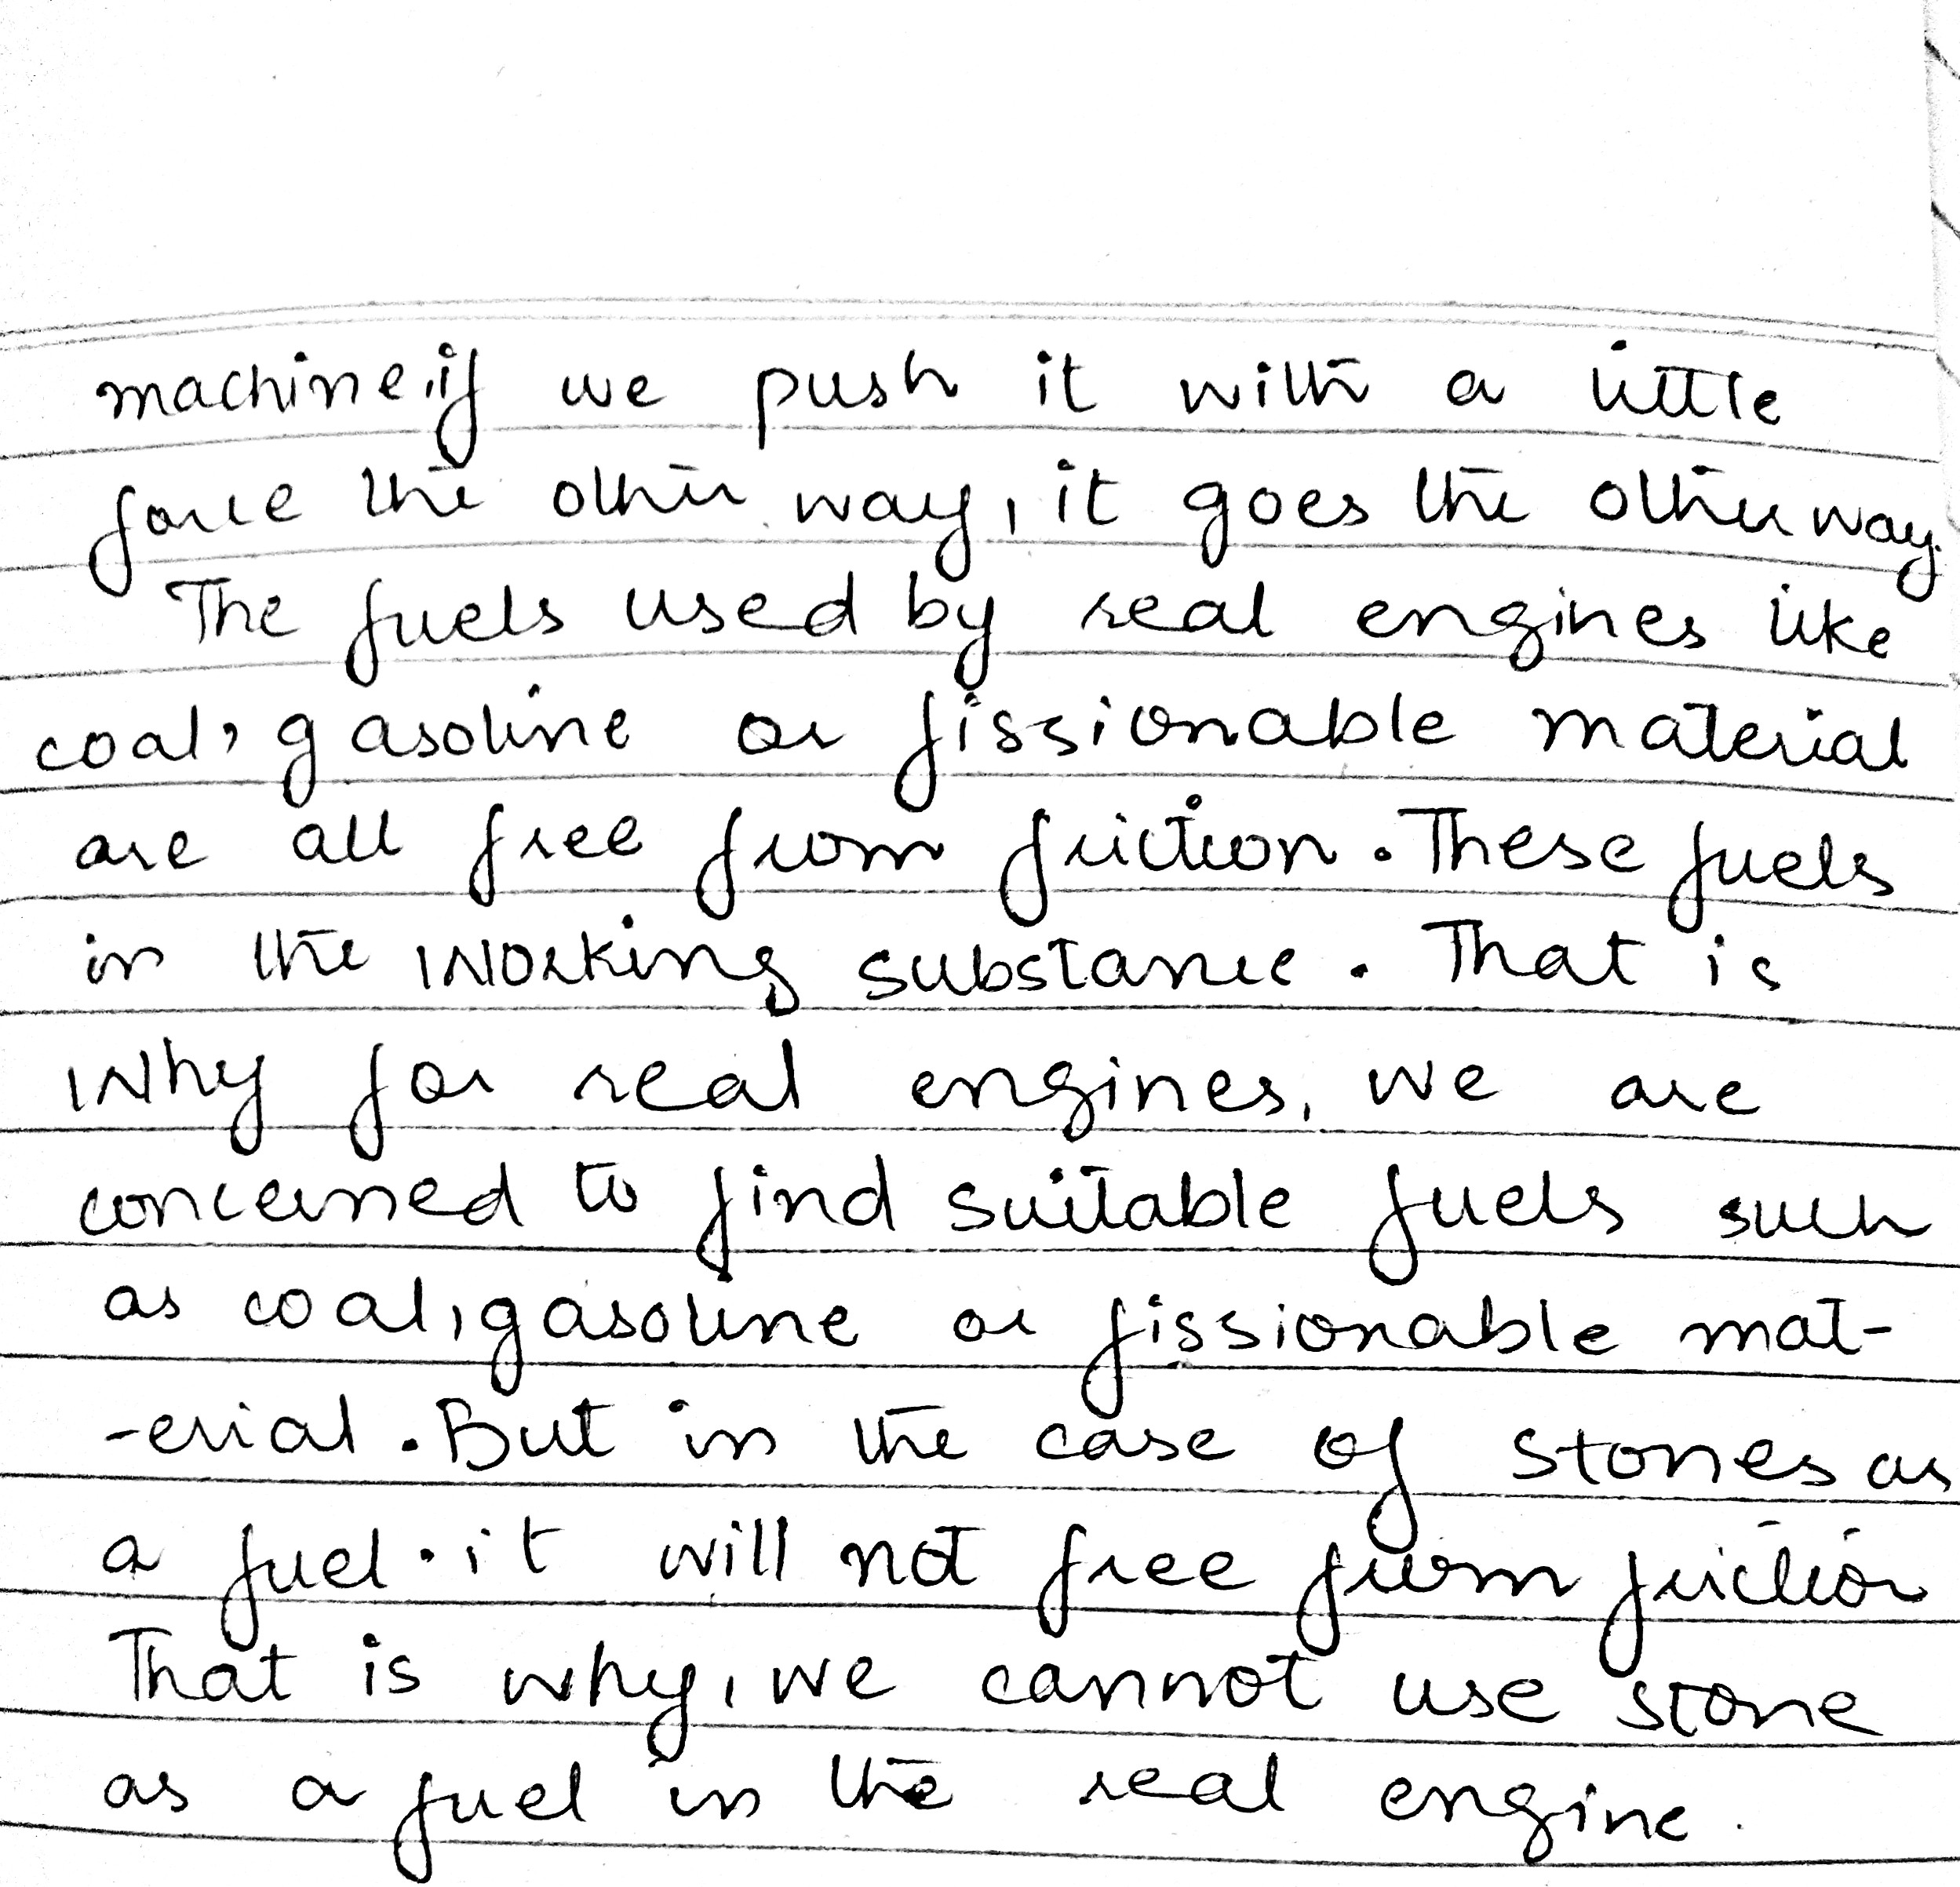 machine, if we push it with a little
force the other way, it goes the other way.
The fuels used by real engines like
coal, gasoline or fissionable material
are all free from friction. These fuels
in the working substance. That is
why for real engines, we are
concerned to find suitable fuels such
as coal, gasoline or fissionable mat-
-erial. But in the case of stones as
a fuel. it will not free from friction
That is why, we cannot use stone
as a fuel in the real engine.